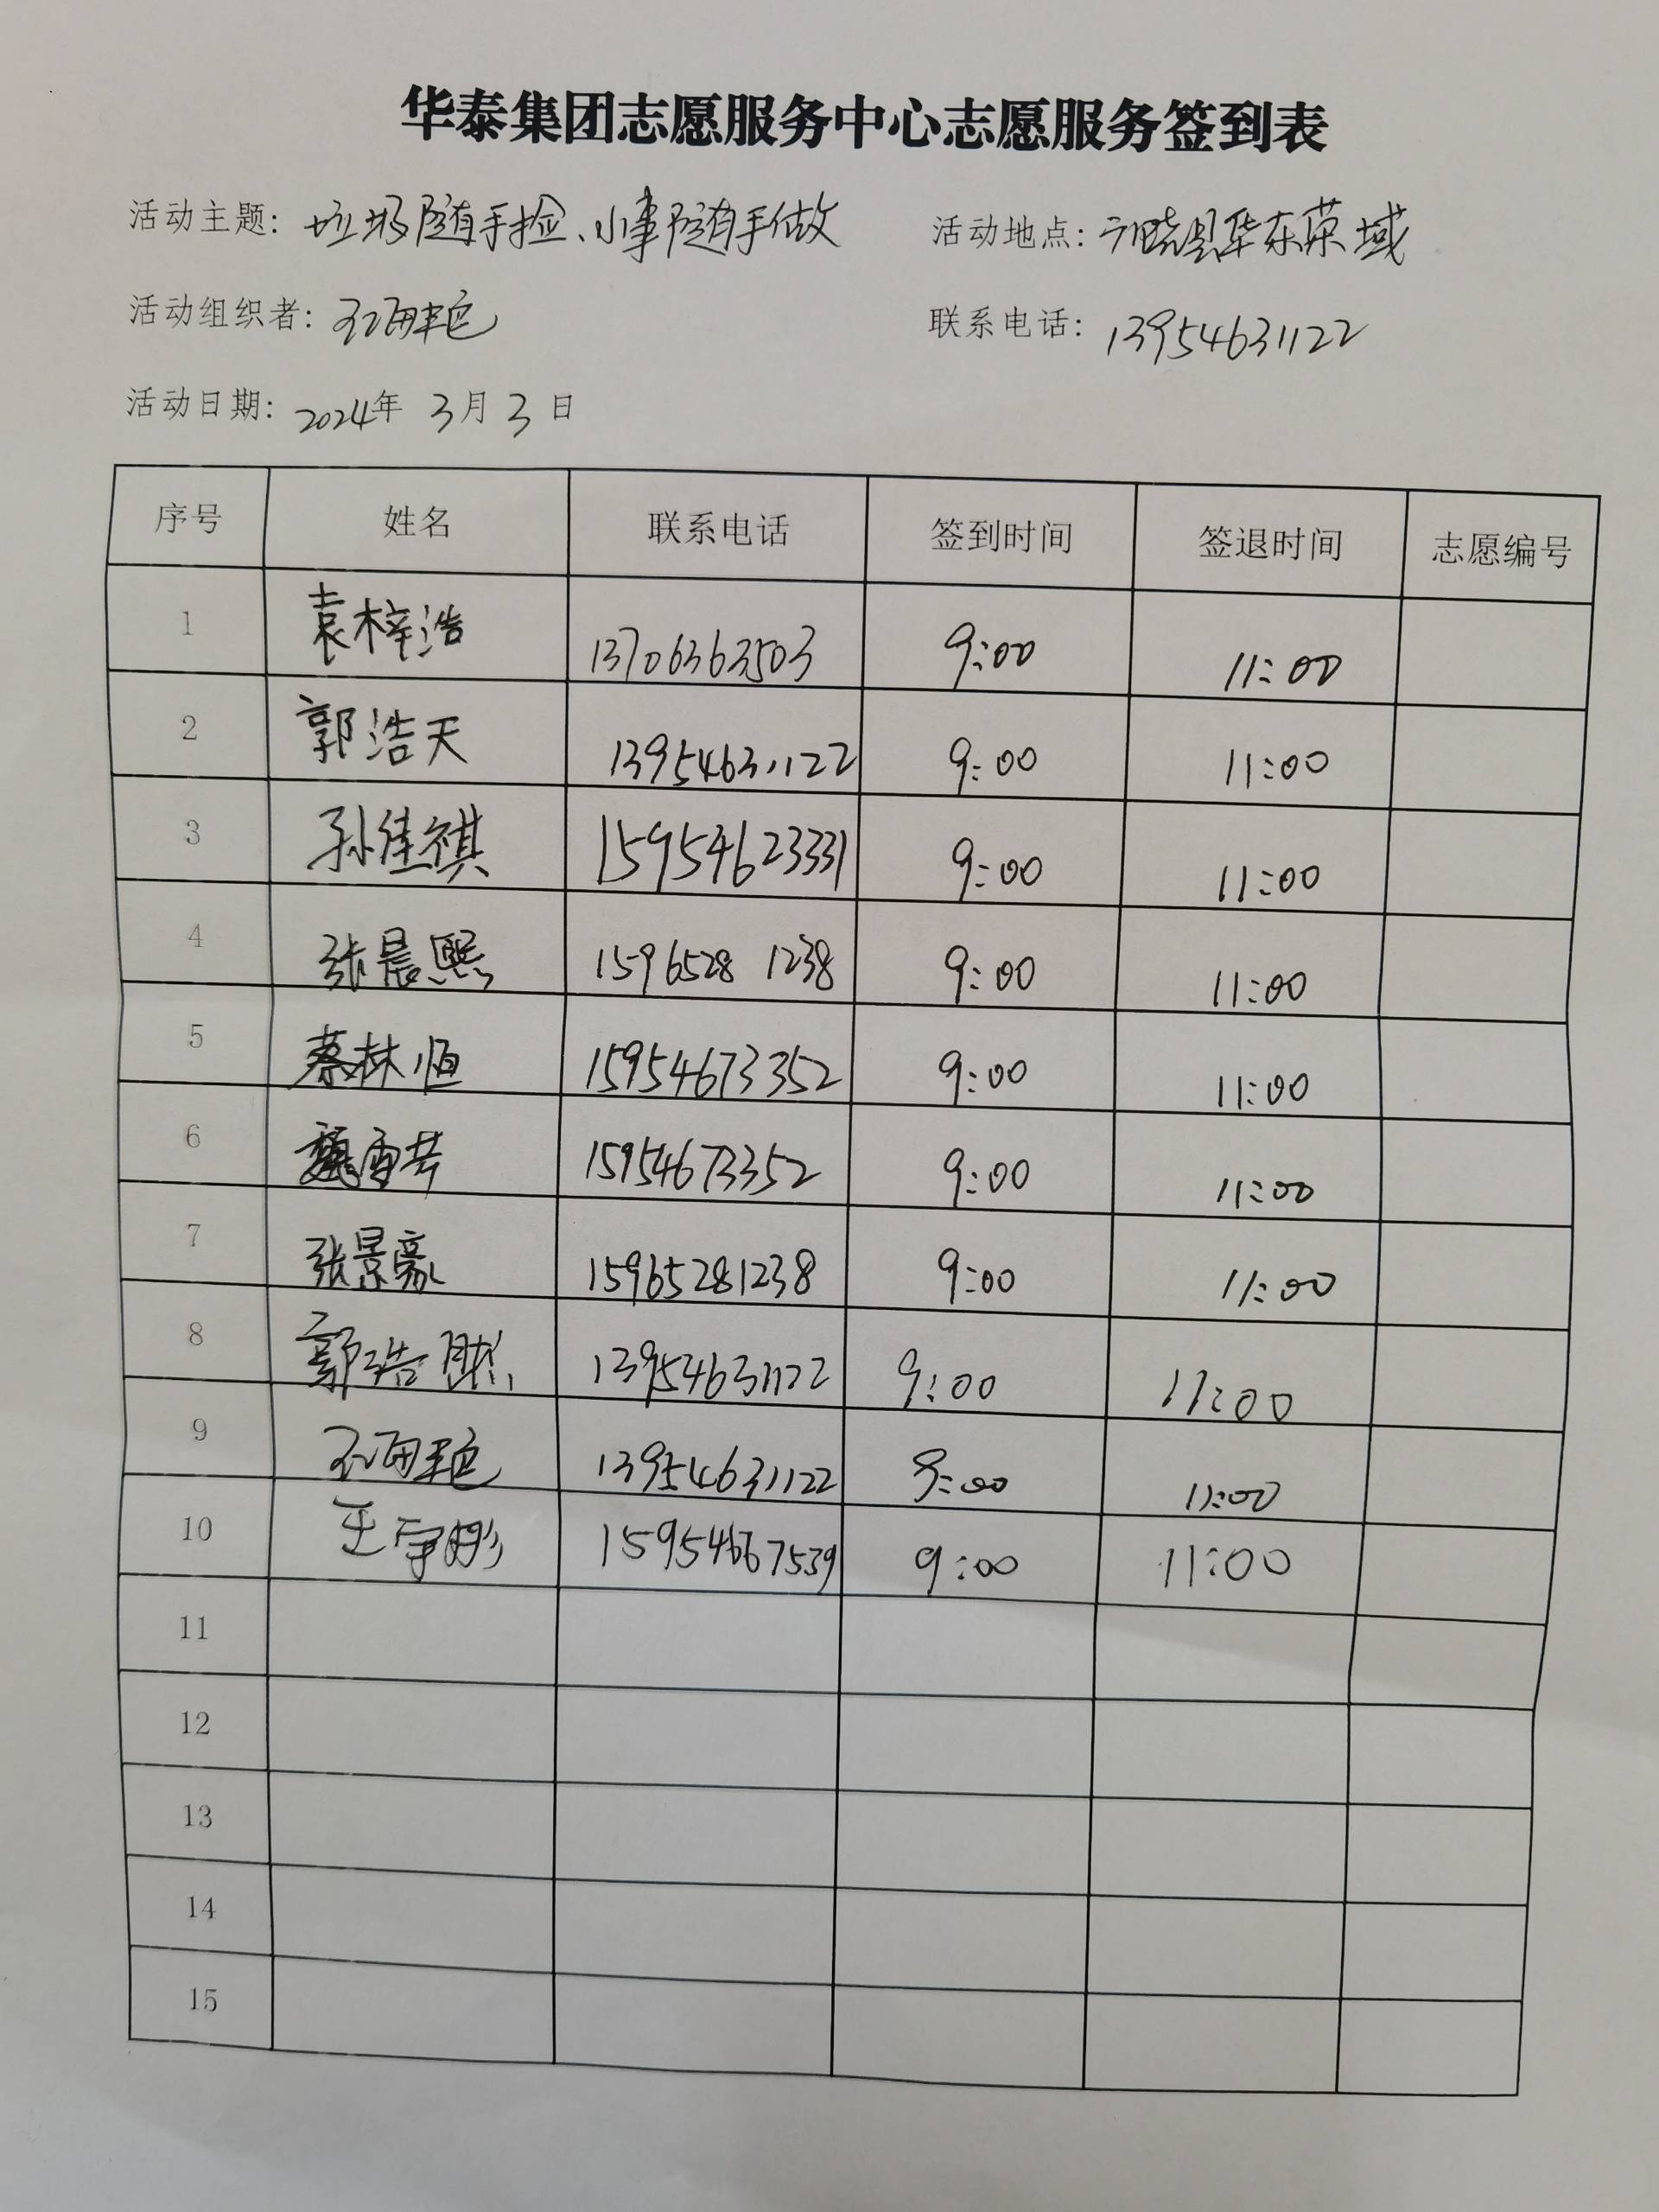 华泰集团志愿服务中心志愿服务签到表
活动主题: 垃圾随手捡、小事随手做 活动地点: 广饶县华东荣域
活动组织者: 联系电话: 13954631122
活动日期: 2024年 3月 3 日
序号 姓名 联系电话 签到时间 签退时间 志愿编号
1 袁梓浩 13706363503 9:00 11:00
2 郭浩天 13954631122 9:00 11:00
3 孙佳祺 15954623331 9:00 11:00
4 张晨熙 15965281238 9:00 11:00
5 蔡林恒 15954673352 9:00 11:00
6 15954673352 9:00 11:00
7 张景豪 15965281238 9:00 11:00
8 郭浩然 13954631122 9:00 11:00
9 13954631122 9:00 11:00
10 王宇彤 15954667539 9:00 11:00
11
12
13
14
15